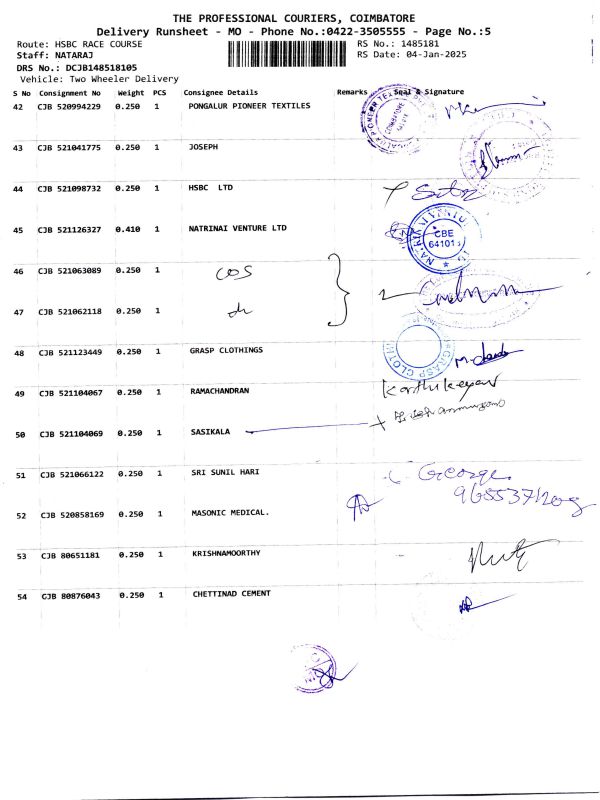 THE PROFESSIONAL COURIERS, COIMBATORE
Delivery Runsheet - MO - Phone No.:0422-3505555 - Page No.:5
Route: HSBC RACE COURSE RS No.: 1485181
Staff: NATARAJ RS Date: 04-Jan-2025
DRS No.: DCJB148518105
Vehicle: Two Wheeler Delivery
S No Consignment No Weight PCS Consignee Details Remarks Seal & Signature
42 CJB 520994229 0.250 1 PONGALUR PIONEER TEXTILES
43 CJB 521041775 0.250 1 JOSEPH
44 CJB 521098732 0.250 1 HSBC LTD
45 CJB 521126327 0.410 1 NATRINAI VENTURE LTD
CBE
64101
46 CJB 521063089 0.250 1 COS
47 CJB 521062118 0.250 1 do
48 CJB 521123449 0.250 1 GRASP CLOTHINGS
GRASP CLOTH
49 CJB 521104067 0.250 1 RAMACHANDRAN Karthikeyan
50 CJB 521104069 0.250 1 SASIKALA
51 CJB 521066122 0.250 1 SRI SUNIL HARI George
52 CJB 520858169 0.250 1 MASONIC MEDICAL.
53 CJB 80651181 0.250 1 KRISHNAMOORTHY
54 GJB 80876043 0.250 1 CHETTINAD CEMENT